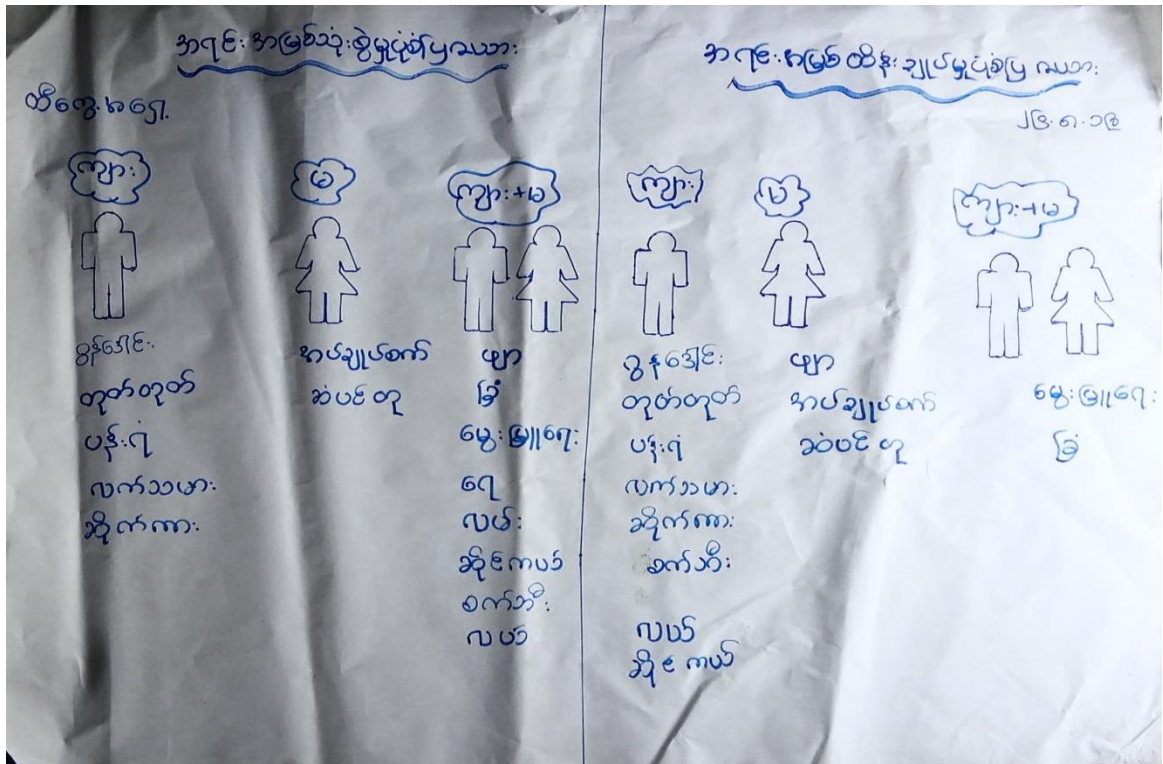 အရင်းအမြစ်သုံးစွဲမှုပုံစံပြဇယား
ထီကွေ့အရှေ့
ကျား
မ
ကျား+မ
ခွန်ဒေါင်း
တုတ်တုတ်
ပန်းရံ
လက်သမား
ဆိုက်ကား
အပ်ချုပ်စက်
ဆံပင်တု
ဖျာ
ခြံ
မွေးမြူရေး
ရေ
လယ်
ဆိုင်ကယ်
စက်ဘီး
လယ်
အရင်းအမြစ်ထိန်းချုပ်မှုပုံစံပြဇယား
ကျား
မ
ကျား+မ
ခွန်ဒေါင်း
တုတ်တုတ်
ပန်းရံ
လက်သမား
ဆိုက်ကား
စက်ဘီး
လယ်
ဆိုင်ကယ်
ဖျာ
အပ်ချုပ်စက်
ဆံပင်တု
မွေးမြူရေး
ခြံ